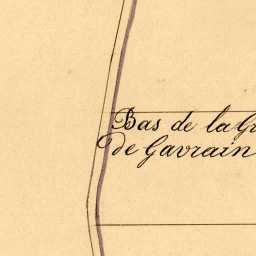 Bas de la
de Gavrain